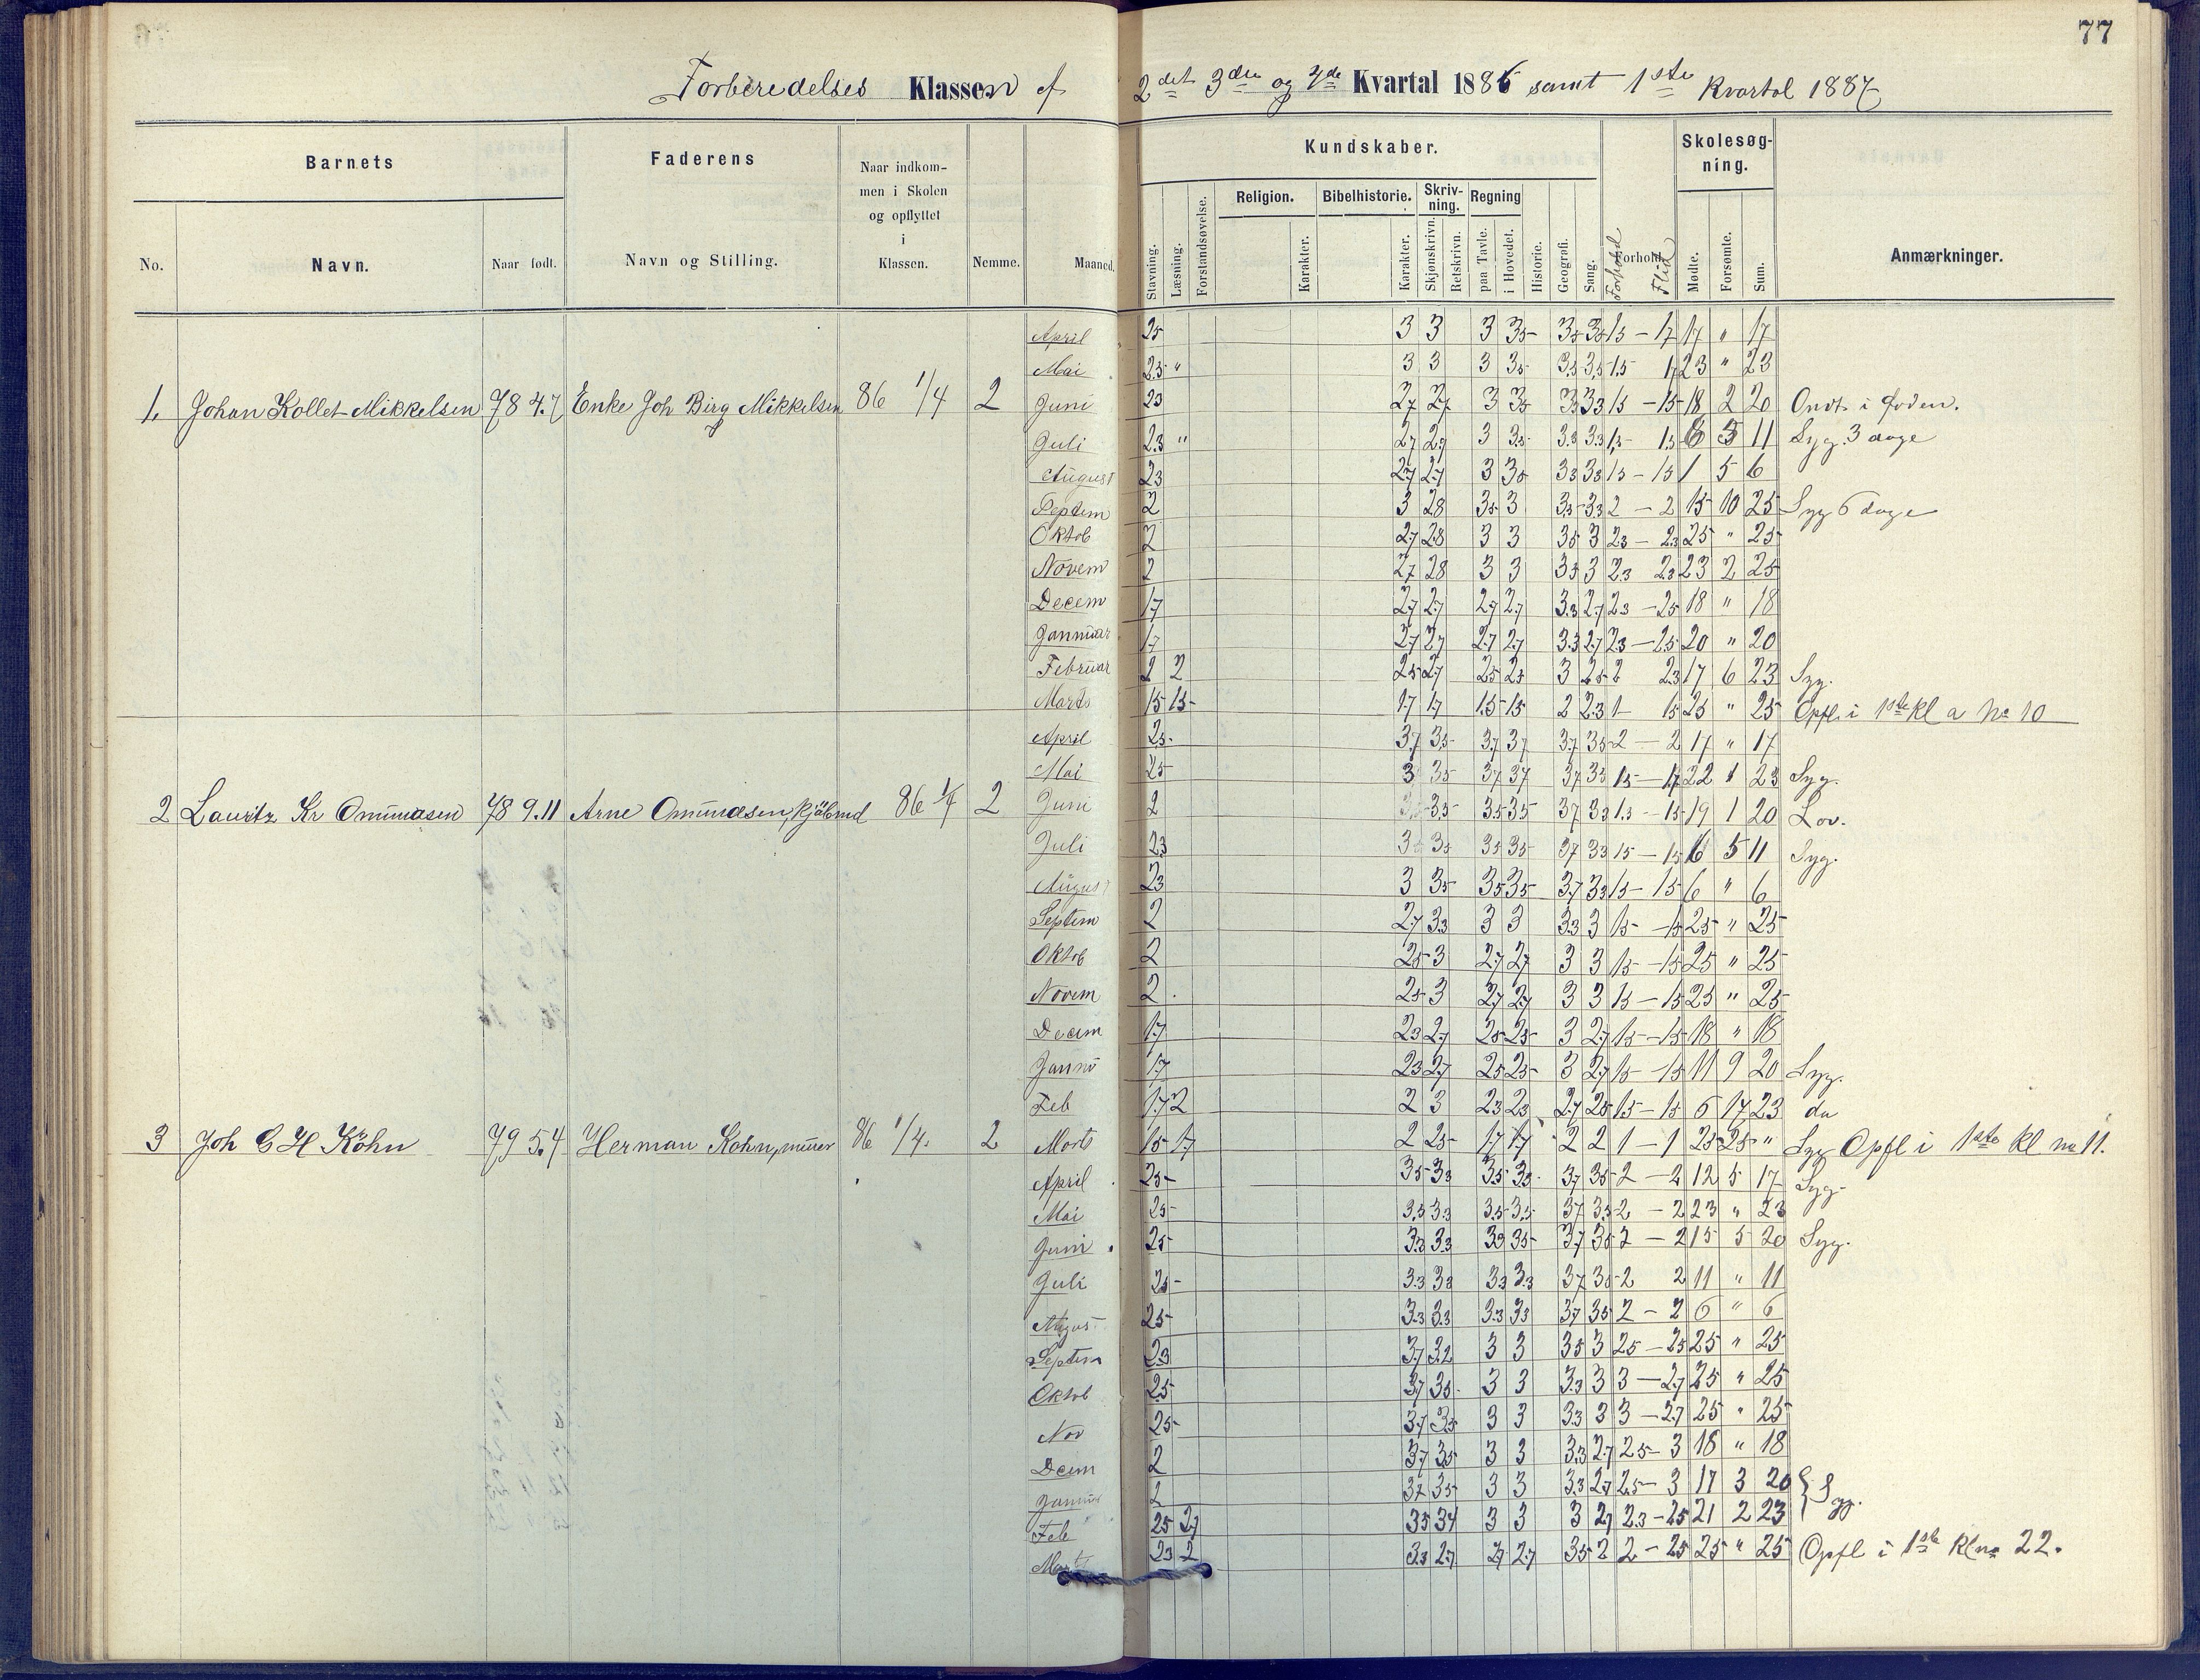 77
Forberedelses Klassen af 2det 3die og 4de Kvartal 1886 samt 1ste Kvartal 1887
Barnets Faderens Naar indkommen i Skolen og opflyttet i Klassen. Nemme. Maaned. Kundskaber. Skolesøgning. Anmærkninger.
No. Navn. Naar født. Navn og Stilling.
Stavning. Læsning. Forstandsøvelse. Religion. Karakter. Bibelhistorie. Karakter. Skrivning. Skjønskrivn. Retskrivn. Regning paa Tavle. i Hovedet. Historie. Geografi. Sang. Forhold. Forhold Flid Mødte. Forsømte. Sum.
April 25 3 3 3 35 35 35 15 - 17 17 " 17
Mai 2.3 " 3 3 3 35 3.3 3.5 15 - 17 23 " 23
1. Johan Kollet Mikkelsen 78 4.7 Enke Joh Birg Mikkelsen 86 1/4 2 Juni 23 27 27 3 35 33 33 15 - 15 18 2 20 Ondt i Foden.
Juli 2.3 " 27 27 3 3.5 3.3 3.3 15 - 15 6 5 11 Syg 3 dage
August 23 27 27 3 35 33 33 15 - 15 1 5 6
Septem 2 3 28 35 3 3.3 3.3 2 - 2 15 10 25 Syg 6 dage
Oktob 2 27 28 3 3 35 3 23 - 23 25 " 25
Novem 2 27 28 3 3 35 3 23 23 23 2 25
Decem 17 27 27 27 27 3.3 27 23 - 25 18 " 18
Januar 17 27 27 27 27 3.3 27 23 - 25 20 " 20
Februar 2 2 25 27 25 25 3 25 2 23 17 6 23 Syg.
Marts 15 15 17 17 15 15 2 23 1 15 25 " 25 Opfl. i 1ste Kl a No 10
April 25 37 35 37 37 37 35 2 - 2 17 " 17
Mai 25 3 35 37 37 37 33 15 - 17 22 1 23 Syg.
2 Lauritz Kr Ommundsen 78 9.11 Arne Ommundsen, Kjøbmd 86 1/4 2 Juni 2 35 35 35 37 33 15 - 15 19 1 20 Lov.
Juli 23 35 35 35 37 33 15 - 15 6 5 11 Syg.
August 23 3 35 35 35 37 33 15 - 15 6 " 6
Septem 2 27 33 3 3 33 3 15 - 15 25 " 25
Oktob 2 25 3 27 27 3 3 15 - 15 25 " 25
Novem 2 25 3 27 27 3 3 15 - 15 25 " 25
Decem 17 23 27 25 25 3 27 15 - 15 18 " 18
Januar 17 23 27 25 25 3 27 15 - 15 11 9 20 Syg.
Feb 17 2 2 3 23 23 27 25 15 - 15 6 17 23 do
3 Joh G H Köhn 79 5.4 Herman Kohn, murer 86 1/4 2 Marts 15 17 2 25 17 17 2 2 1 - 1 25 25 " Syg Opfl i 1ste Kl no 11.
April 25 35 33 35 33 37 35 2 - 2 12 5 17 Syg
Mai 25 3.5 33 3.5 3.5 37 3.5 2 - 2 23 " 23
Juni 25 33 33 33 35 37 35 2 - 2 15 5 20 Syg.
Juli 25 33 33 33 33 37 35 2 2 11 " 11
August 25 33 33 33 33 37 35 2 - 2 6 " 6
Septem 23 37 32 3 3 35 3 25 - 25 25 " 25
Oktob 25 37 35 3 3 33 3 3 - 27 25 " 25
Nov 25 37 35 3 3 33 3 3 - 27 25 " 25
Decem 2 37 35 3 3 33 27 25 - 3 18 " 18
Januar 2 37 35 3 3 33 27 25 - 3 17 3 20 Syg.
Feb 25 27 35 34 3 3 3 27 23 - 25 21 2 23
Marts 23 2 33 27 27 27 35 2 2 - 25 25 " 25 Opfl i 1ste Kl no 22.